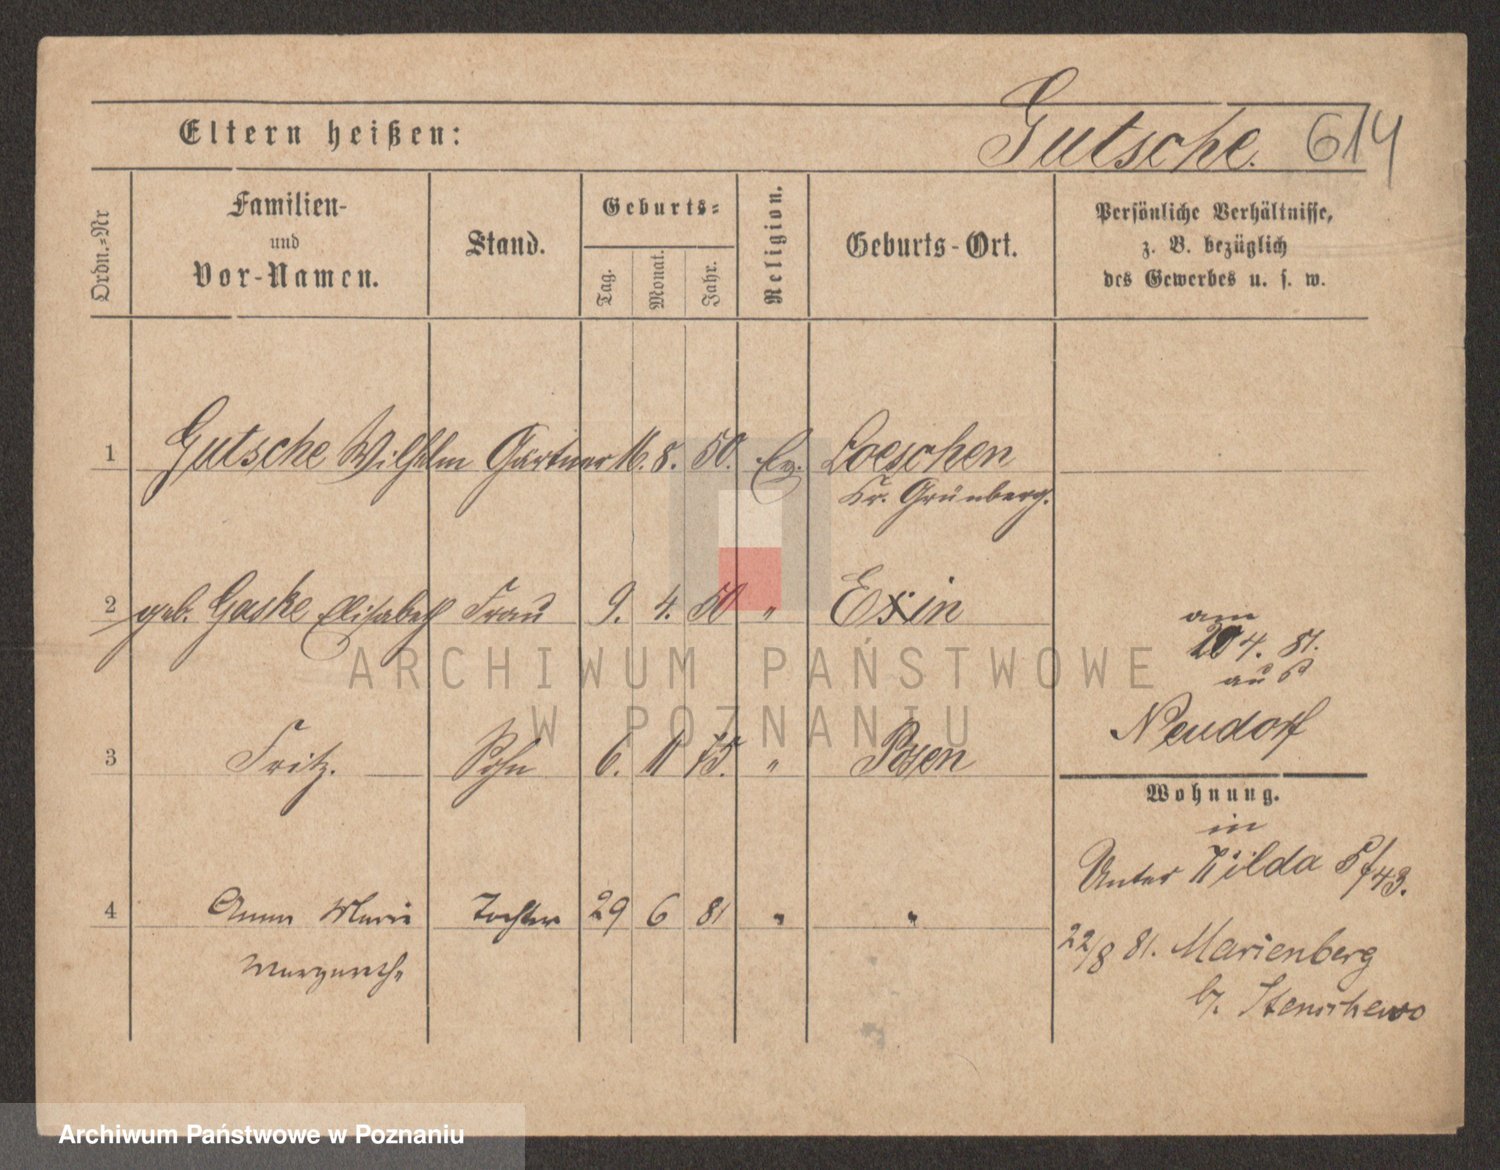 Gutsche. 614
Eltern heißen:
Ordn.=Nr
Familien-
und
Vor-Namen.
Stand.
Geburts=
Tag.
Monat.
Jahr.
Religion.
Geburts-Ort.
Persönliche Verhältnisse,
z. B. bezüglich
des Gewerbes u. s. w.
1 Gutsche Wilhelm Gärtner 16. 8. 50. Ev. Loeschen
Kr. Grünberg.
2 geb. Gaske Elisabeth Frau 9. 4. 50 " Exin
am
20 4. 81.
aus
Neudorf
3 Fritz. Sohn 6. 11 75. " Posen
Wohnung.
in
Unter Wilda 5/43.
4 Anna Marie Tochter 29 6 81 " "
Margareth.
22/8 81. Marienberg
b. Stenschewo
ARCHIWUM PAŃSTWOWE
W POZNANIU
Archiwum Państwowe w Poznaniu